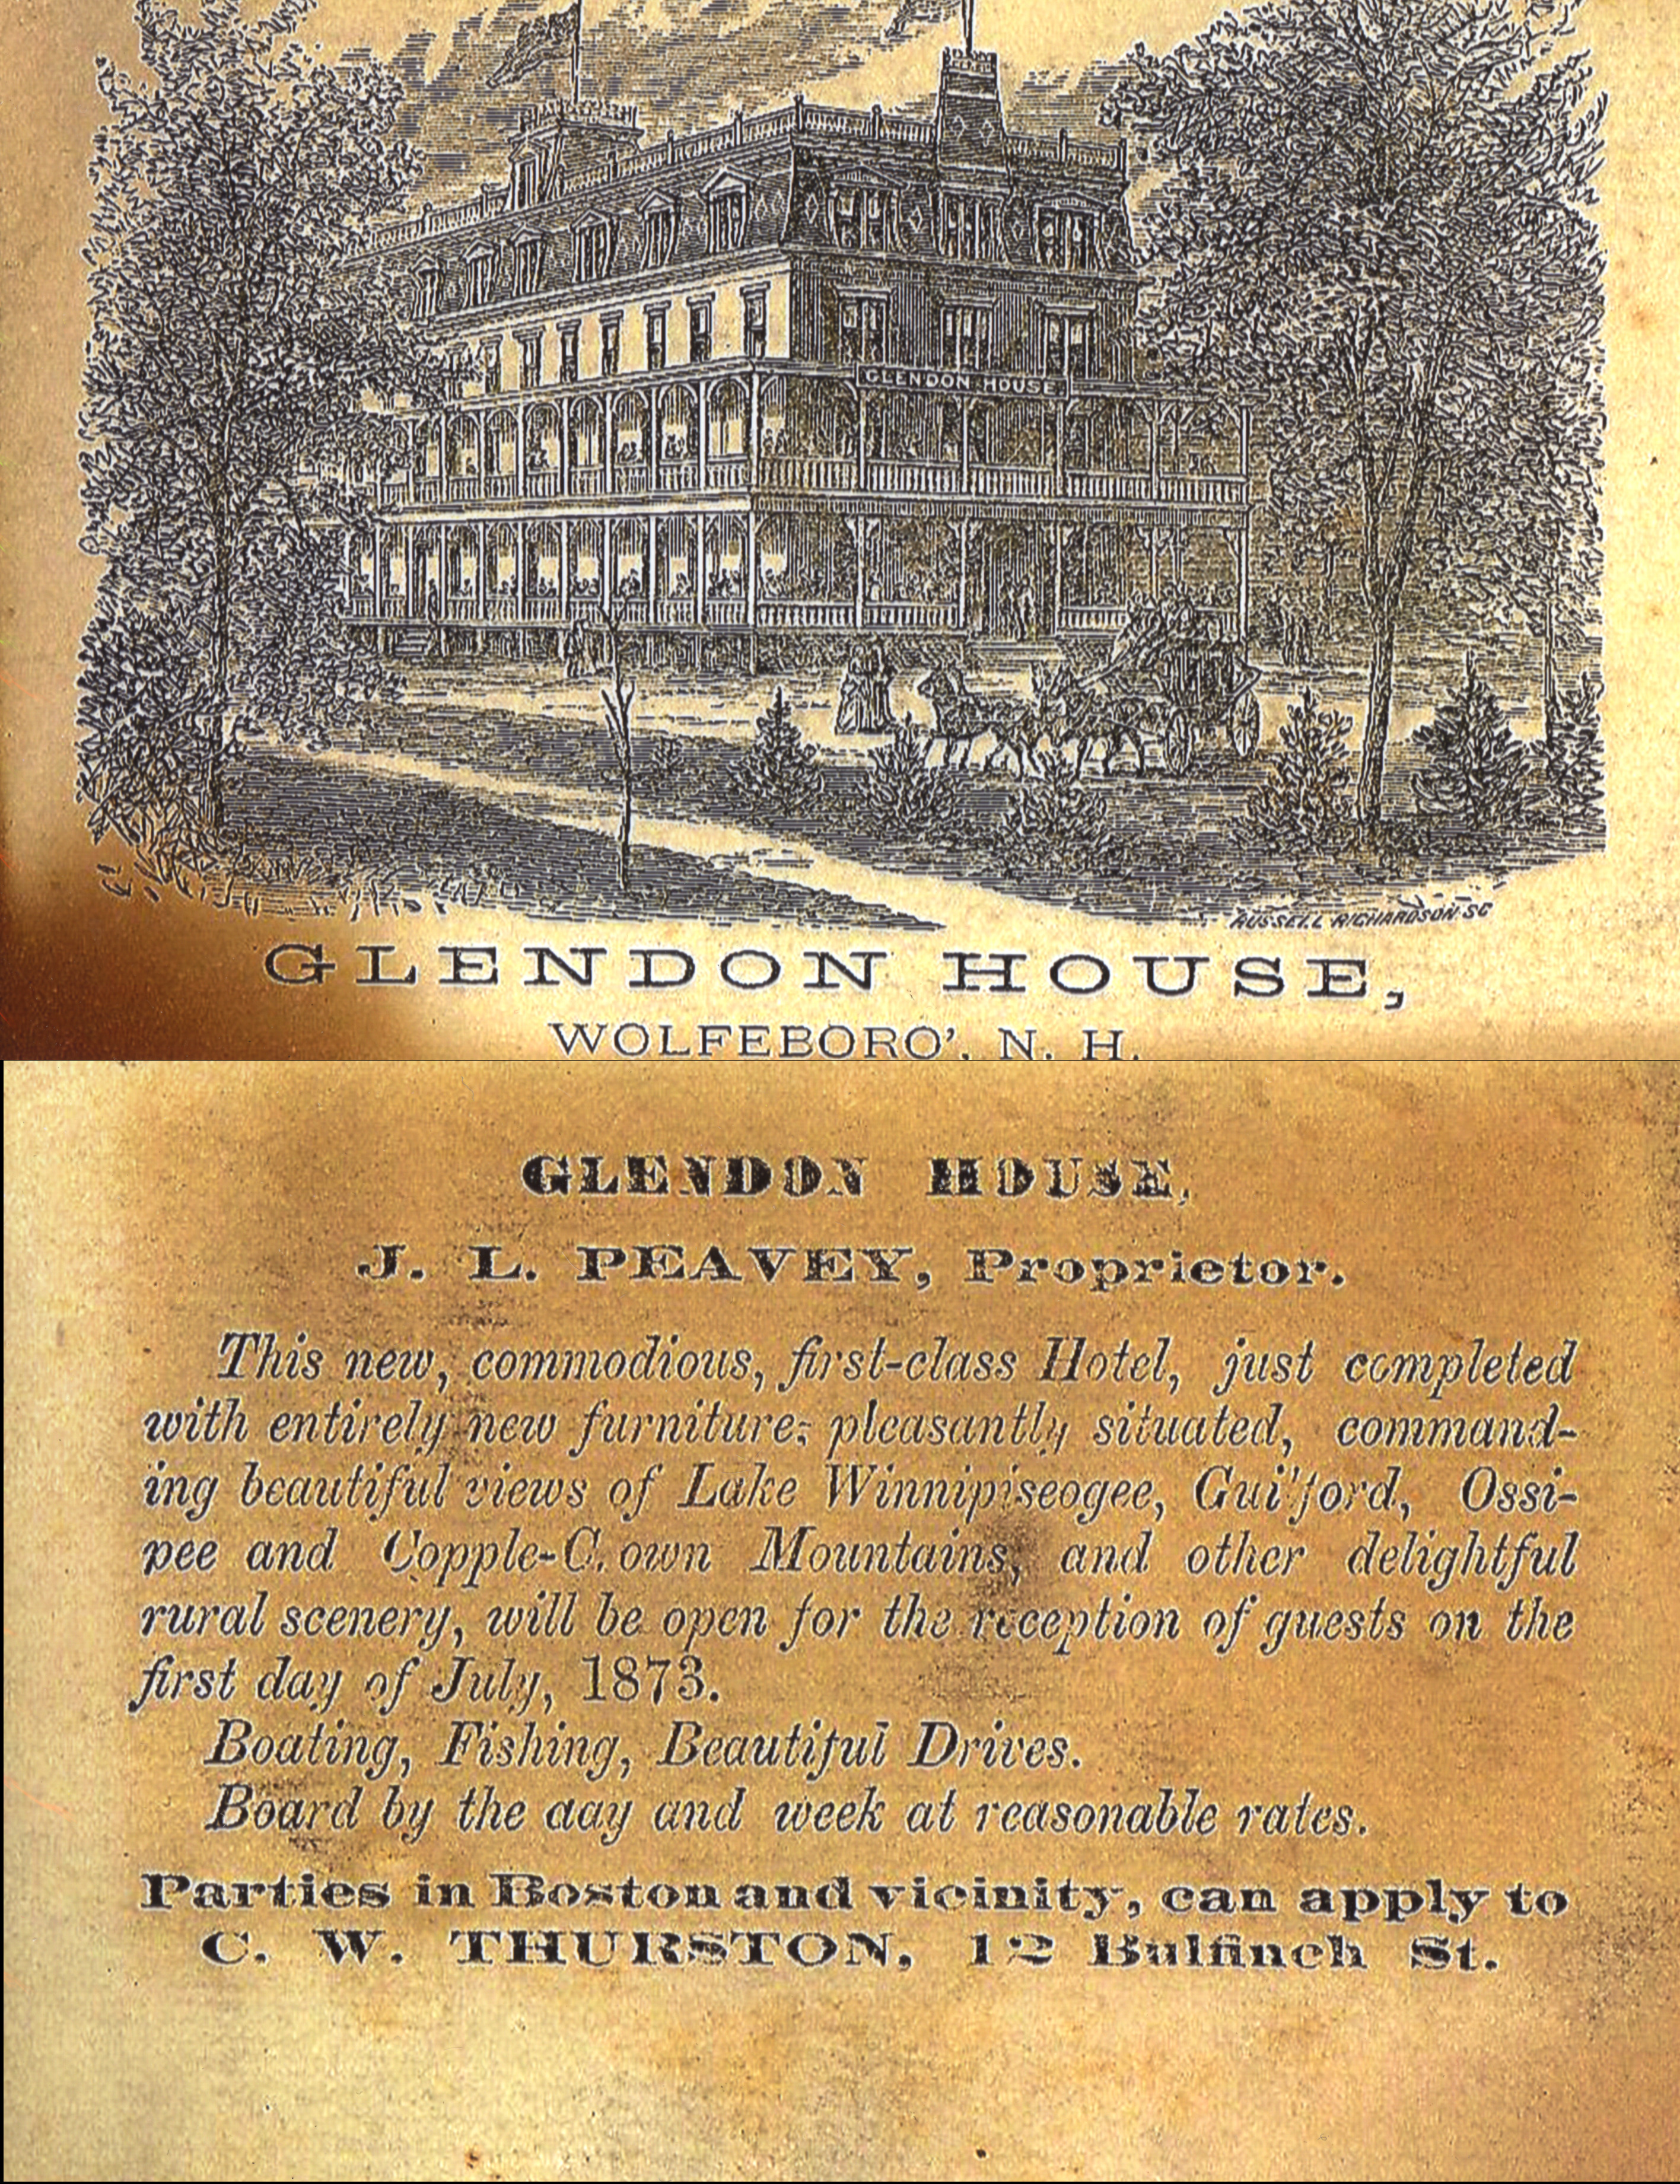 GLENDON HOUSE
RUSSELL RICHARDSON SC
GLENDON HOUSE,
WOLFEBORO', N. H.
GLENDON HOUSE,
J. L. PEAVEY, Proprietor.
This new, commodious, first-class Hotel, just completed
with entirely new furniture; pleasantly situated, command-
ing beautiful views of Lake Winnipiseogee, Guilford, Ossi-
pee and Copple-Crown Mountains, and other delightful
rural scenery, will be open for the reception of guests on the
first day of July, 1873.
Boating, Fishing, Beautiful Drives.
Board by the day and week at reasonable rates.
Parties in Boston and vicinity, can apply to
C. W. THURSTON, 12 Bulfinch St.